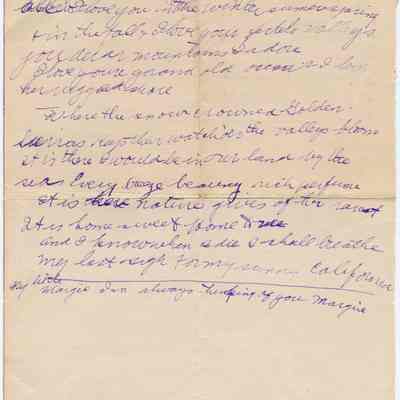 I love you in the winter summer spring
& in the fall & I love your fertile valley's
your dear mountains I adore
I love your grand old ocean & I love
her rugged shore
Where the snow crowned Golden
keep their watch o'er the valleys bloom
it is there I would be in our land by the
sea Every breeze bearing rich perfume
it is here nature gives of her rarest
It is home sweet home to me
and I know when I die I shall breathe
my last sigh For my sunny California
My little
Margie I am always thinking of you Margie